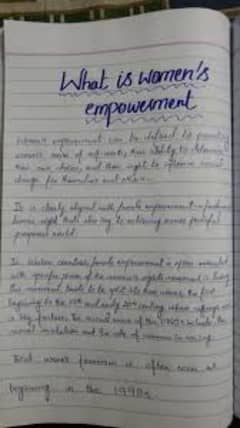 What is women's
empowerment
Women's empowerment can be defined to promoting
women's sense of self-worth, their ability to determine
their own choices, and their right to influence social
change for themselves and others.
It is closely aligned with female empowerment - a fundamental
human right that's also key to achieving a more peaceful
prosperous world.
In Western countries, female empowerment is often associated
with specific phases of the women's rights movement in history
This movement tends to be split into three waves, the first
beginning in the 19th and early 20th century where suffrage was
a key feature. The second wave of the 1960s include the
sexual revolution and the role of women in society.
Third wave feminism is often seen as
beginning in the 1990s.